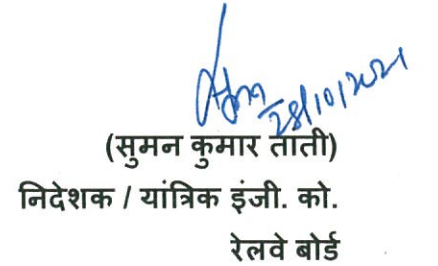 28/10/2021
(सुमन कुमार ताती)
निदेशक / यांत्रिक इंजी. को.
रेलवे बोर्ड